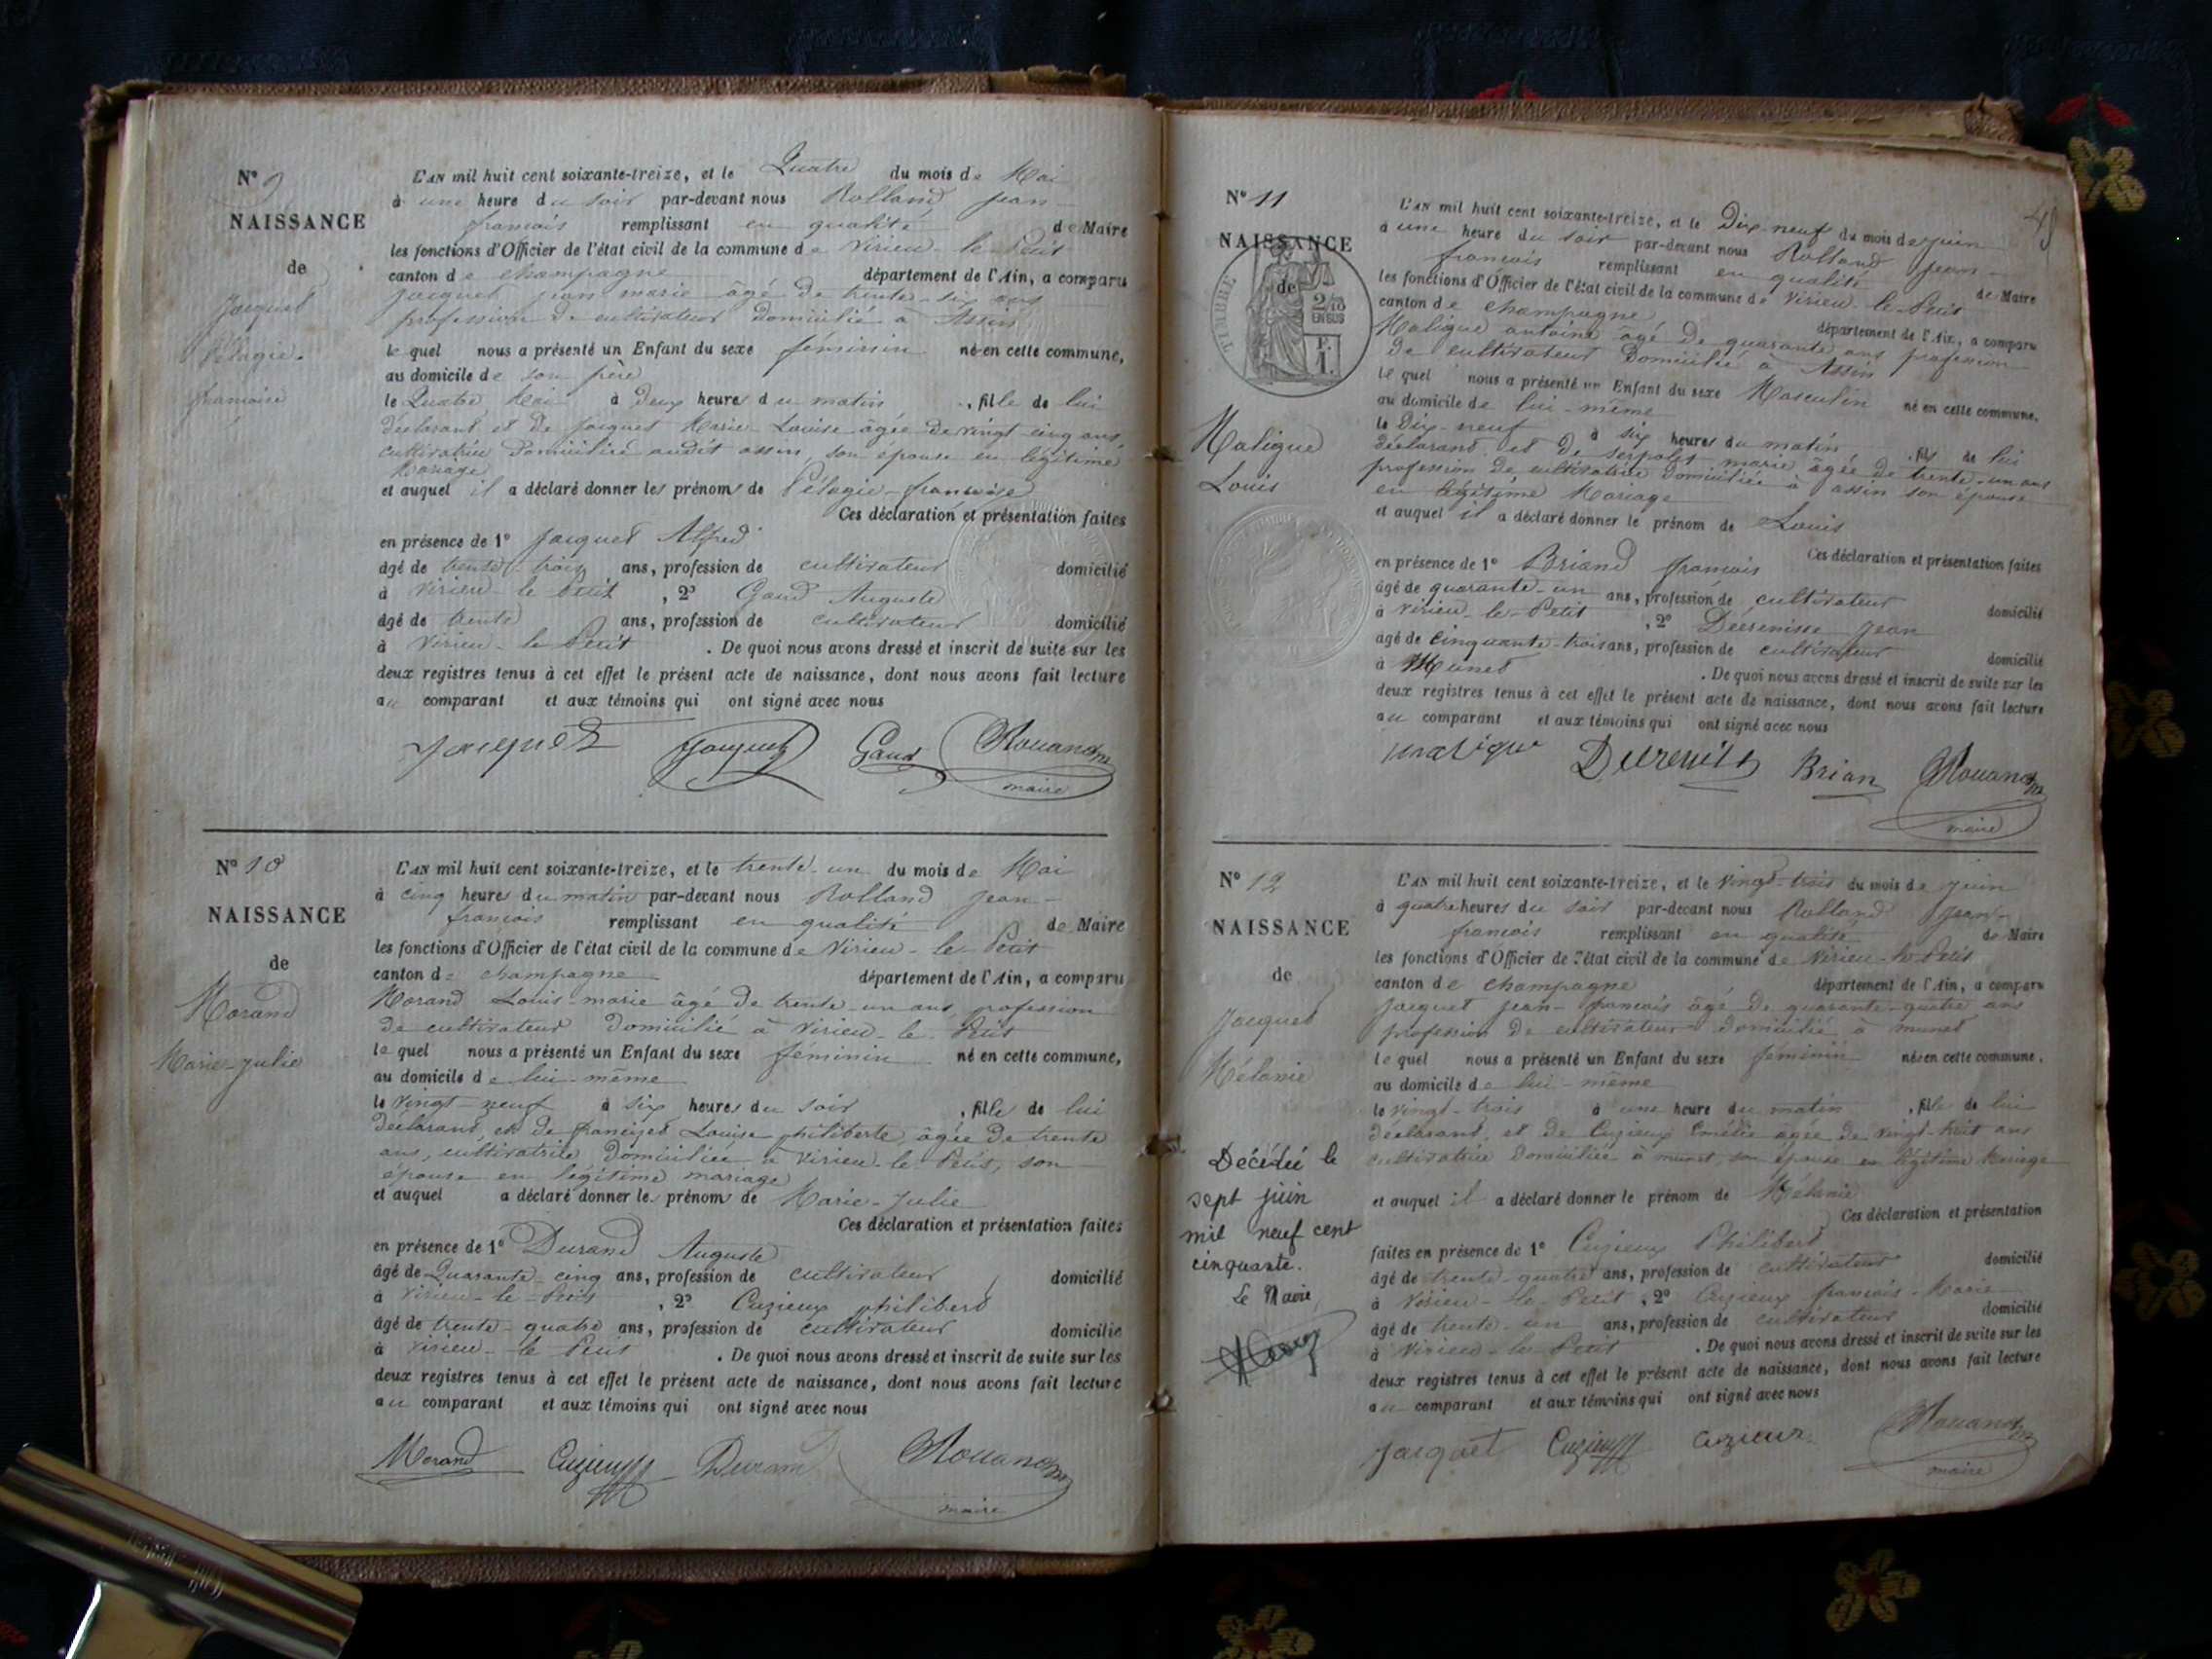 N° 9
NAISSANCE
de
Jacquet
Pélagie-
françoise
L'AN mil huit cent soixante-treize, et le Quatre du mois de Mai
à une heure du soir par-devant nous Rolland jean-
françois remplissant en qualité de Maire
les fonctions d'Officier de l'état civil de la commune de Virieu-le-Petit
canton de champagne département de l'Ain, a comparu
jacquet jean marie âgé de trente-six ans
profession de cultivateur domicilié à Assin
lequel nous a présenté un Enfant du sexe féminin né en cette commune,
au domicile de son père
le Quatre Mai à deux heures du matin, fille de lui
déclarant et de jacquet Marie-Louise âgée de vingt cinq ans,
cultivatrice domiciliée audit assin, son épouse en légitime
Mariage
et auquel il a déclaré donner les prénoms de Pélagie-françoise
Ces déclaration et présentation faites
en présence de 1° jacquet Alfred
âgé de trente-trois ans, profession de cultivateur domicilié
à Virieu-le-Petit, 2° Gaud Auguste
âgé de trente ans, profession de cultivateur domicilié
à Virieu-le-Petit. De quoi nous avons dressé et inscrit de suite sur les
deux registres tenus à cet effet le présent acte de naissance, dont nous avons fait lecture
au comparant et aux témoins qui ont signé avec nous
Jacquet Jacquet Gaud
maire
N° 10
NAISSANCE
de
Morand
Marie-julie
L'AN mil huit cent soixante-treize, et le trente-un du mois de Mai
à cinq heures du matin par-devant nous Rolland jean-
françois remplissant en qualité de Maire
les fonctions d'Officier de l'état civil de la commune de Virieu-le-Petit
canton de champagne département de l'Ain, a comparu
Morand Louis-marie âgé de trente un ans, profession
de cultivateur domicilié à Virieu-le-Petit
lequel nous a présenté un Enfant du sexe féminin né en cette commune,
au domicile de lui-même
le vingt-neuf à six heures du soir, fille de lui
déclarant, et de françoise Louise philiberte, âgée de trente
ans, cultivatrice domiciliée à Virieu-le-Petit, son
épouse en légitime mariage
et auquel a déclaré donner les prénoms de Marie-julie
Ces déclaration et présentation faites
en présence de 1° Durand Auguste
âgé de Quarante-cinq ans, profession de cultivateur, domicilié
à Virieu-le-Petit, 2° Cuzieux philibert
âgé de trente-quatre ans, profession de cultivateur domicilié
à Virieu-le-Petit. De quoi nous avons dressé et inscrit de suite sur les
deux registres tenus à cet effet le présent acte de naissance, dont nous avons fait lecture
au comparant et aux témoins qui ont signé avec nous
Morand Cuzieux Durand
maire
49
N° 11
NAISSANCE
de
TIMBRE
2/10 EN SUS
F. 1.
Maligue
Louis
L'AN mil huit cent soixante-treize, et le Dix-neuf du mois de juin
à une heure du soir par-devant nous Rolland jean-
françois remplissant en qualité de Maire
les fonctions d'Officier de l'état civil de la commune de Virieu-le-Petit
canton de champagne département de l'Ain, a comparu
Maligue antoine âgé de quarante ans profession
de cultivateur domicilié à Assin
lequel nous a présenté un Enfant du sexe Masculin né en cette commune,
au domicile de lui-même
le Dix-neuf à six heures du matin, fils de lui
déclarant et de serpolet marie, âgée de trente-un ans
profession de cultivatrice domiciliée à assin son épouse
en légitime Mariage
et auquel il a déclaré donner le prénom de Louis
Ces déclaration et présentation faites
en présence de 1° Briand françois
âgé de quarante-un ans, profession de cultivateur domicilié
à Virieu-le-Petit, 2° Decrenisse jean
âgé de cinquante-trois ans, profession de cultivateur domicilié
à Munet. De quoi nous avons dressé et inscrit de suite sur les
deux registres tenus à cet effet le présent acte de naissance, dont nous avons fait lecture
au comparant et aux témoins qui ont signé avec nous
maligue Brian
maire
N° 12
NAISSANCE
de
Jacquet
Mélanie
Décédée le
sept juin
mil neuf cent
cinquante.
Le Maire,
L'AN mil huit cent soixante-treize, et le vingt-trois du mois de juin
à quatre heures du soir par-devant nous Rolland jean-
françois remplissant en qualité de Maire
les fonctions d'Officier de l'état civil de la commune de Virieu-le-Petit
canton de champagne département de l'Ain, a comparu
jacquet jean-françois âgé de quarante-quatre ans
profession de cultivateur domicilié à munet
lequel nous a présenté un Enfant du sexe féminin née en cette commune.
au domicile de lui-même
le vingt-trois à une heure du matin, fille de lui
déclarant, et de Cuzieux Emélie âgée de vingt-huit ans
cultivatrice domiciliée à munet, son épouse en légitime Mariage
et auquel il a déclaré donner le prénom de Mélanie
Ces déclaration et présentation
faites en présence de 1° Cuzieux Philibert
âgé de trente-quatre ans, profession de cultivateur domicilié
à Virieu-le-Petit, 2° Cuzieux françois-Marie
âgé de trente-un ans, profession de cultivateur domicilié
à Virieu-le-Petit. De quoi nous avons dressé et inscrit de suite sur les
deux registres tenus à cet effet le présent acte de naissance, dont nous avons fait lecture
au comparant et aux témoins qui ont signé avec nous
Jacquet Cuzieux Cuzieux
maire